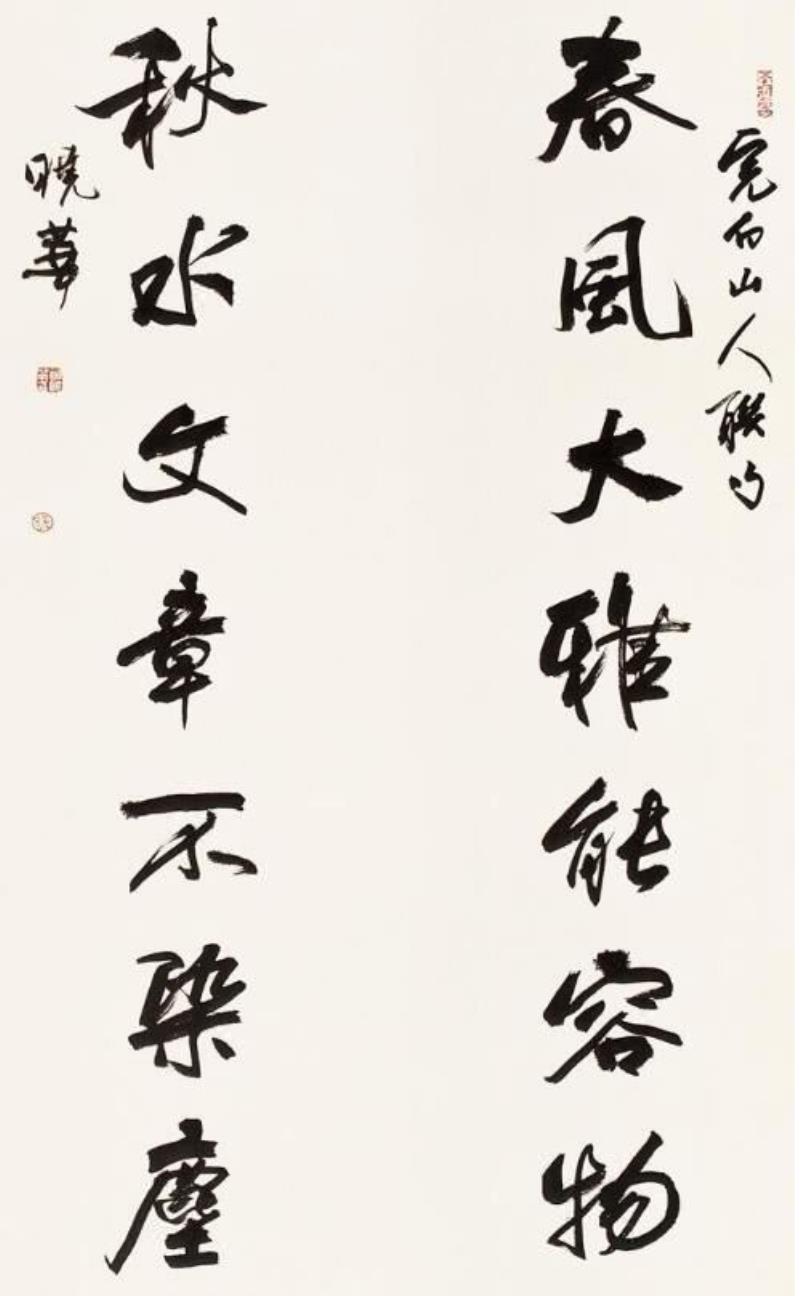 完白山人聯句
春風大雅能容物
秋水文章不染塵
曉華